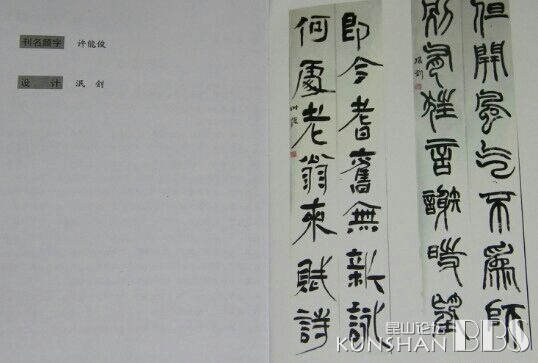 刊名题字 许能俊
设计 泯剑
但開風气不爲師
別有狂言謝時望
即今耆舊無新詠
何處老翁來賦詩
昆山论坛
KUNSHAN BBS